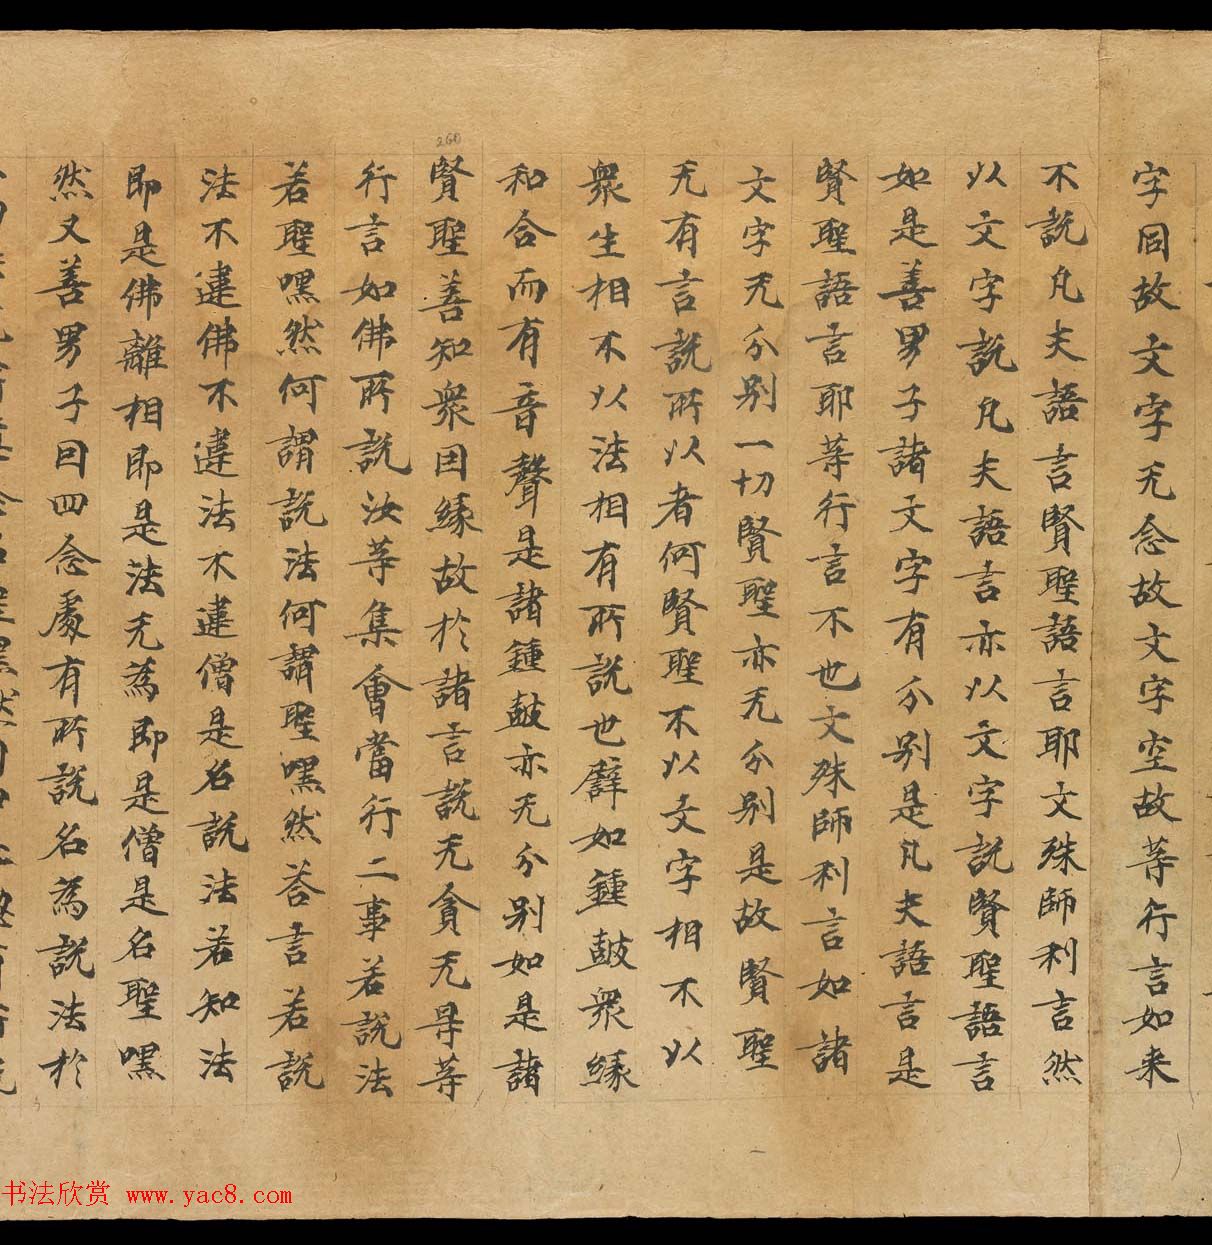 字同故文字无念故文字空故等行言如来
不說凡夫語言賢聖語言耶文殊師利言然
以文字說凡夫語言亦以文字說賢聖語言
如是善男子諸文字有分別是凡夫語言是
賢聖語言耶等行言不也文殊師利言如諸
文字无分別一切賢聖亦无分別是故賢聖
无有言說所以者何賢聖不以文字相不以
衆生相不以法相有所說也譬如鍾鼓衆緣
和合而有音聲是諸鍾鼓亦无分別如是諸
260
賢聖善知衆因緣故於諸言說无貪无㝵等
行言如佛所說汝等集會當行二事若說法
若聖嘿然何謂說法何謂聖嘿然荅言若說
法不違佛不違法不違僧是名說法若知法
即是佛離相即是法无為即是僧是名聖嘿
然又善男子因四念處有所說名為說法於
书法欣赏 www.yac8.com